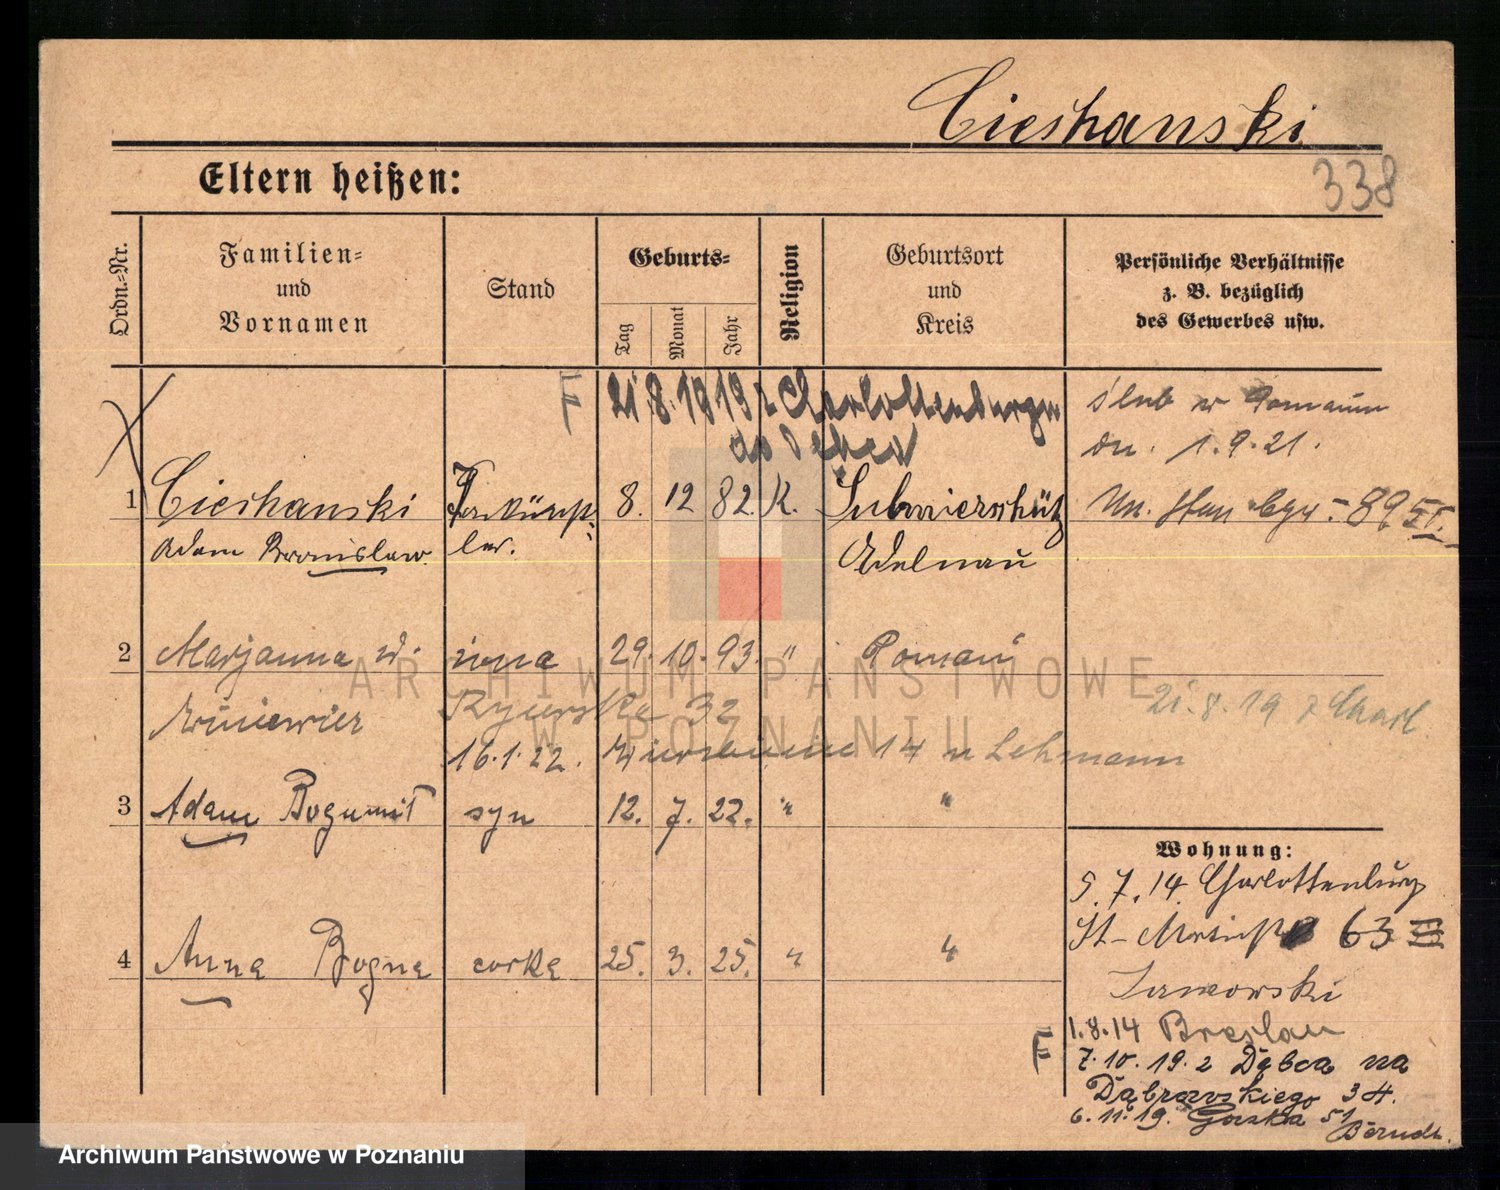 Cieshanski
338
Eltern heißen:
Ordn.-Nr.
Familien-
und
Vornamen
Stand
Geburts-
Tag
Monat
Jahr
Religion
Geburtsort
und
Kreis
Persönliche Verhältnisse
z. B. bezüglich
des Gewerbes usw.
21.8.1919 z Charlottenburga
ślub w Poznaniu
dn. 1.9.21.
1 Cieshanski 8. 12 82. K.
Adam Bronislaw. ler. Adelnau
2 Marjanna żona 29. 10. 93. " Poznań
32 21.8.19 z Charl.
16.1.22. 14 u Lehmann
3 Adam Bogumił syn 12. 7. 22. " "
Wohnung:
5.7.14 Charlottenburg
St. 63
4 Anna Bogna córka 25. 3. 25. " "
Jaworski
1.8.14 Breslau
7.10.19. z Dębca na
Dąbrowskiego 34.
6.11.19. 51
ARCHIWUM PAŃSTWOWE
W POZNANIU
Archiwum Państwowe w Poznaniu